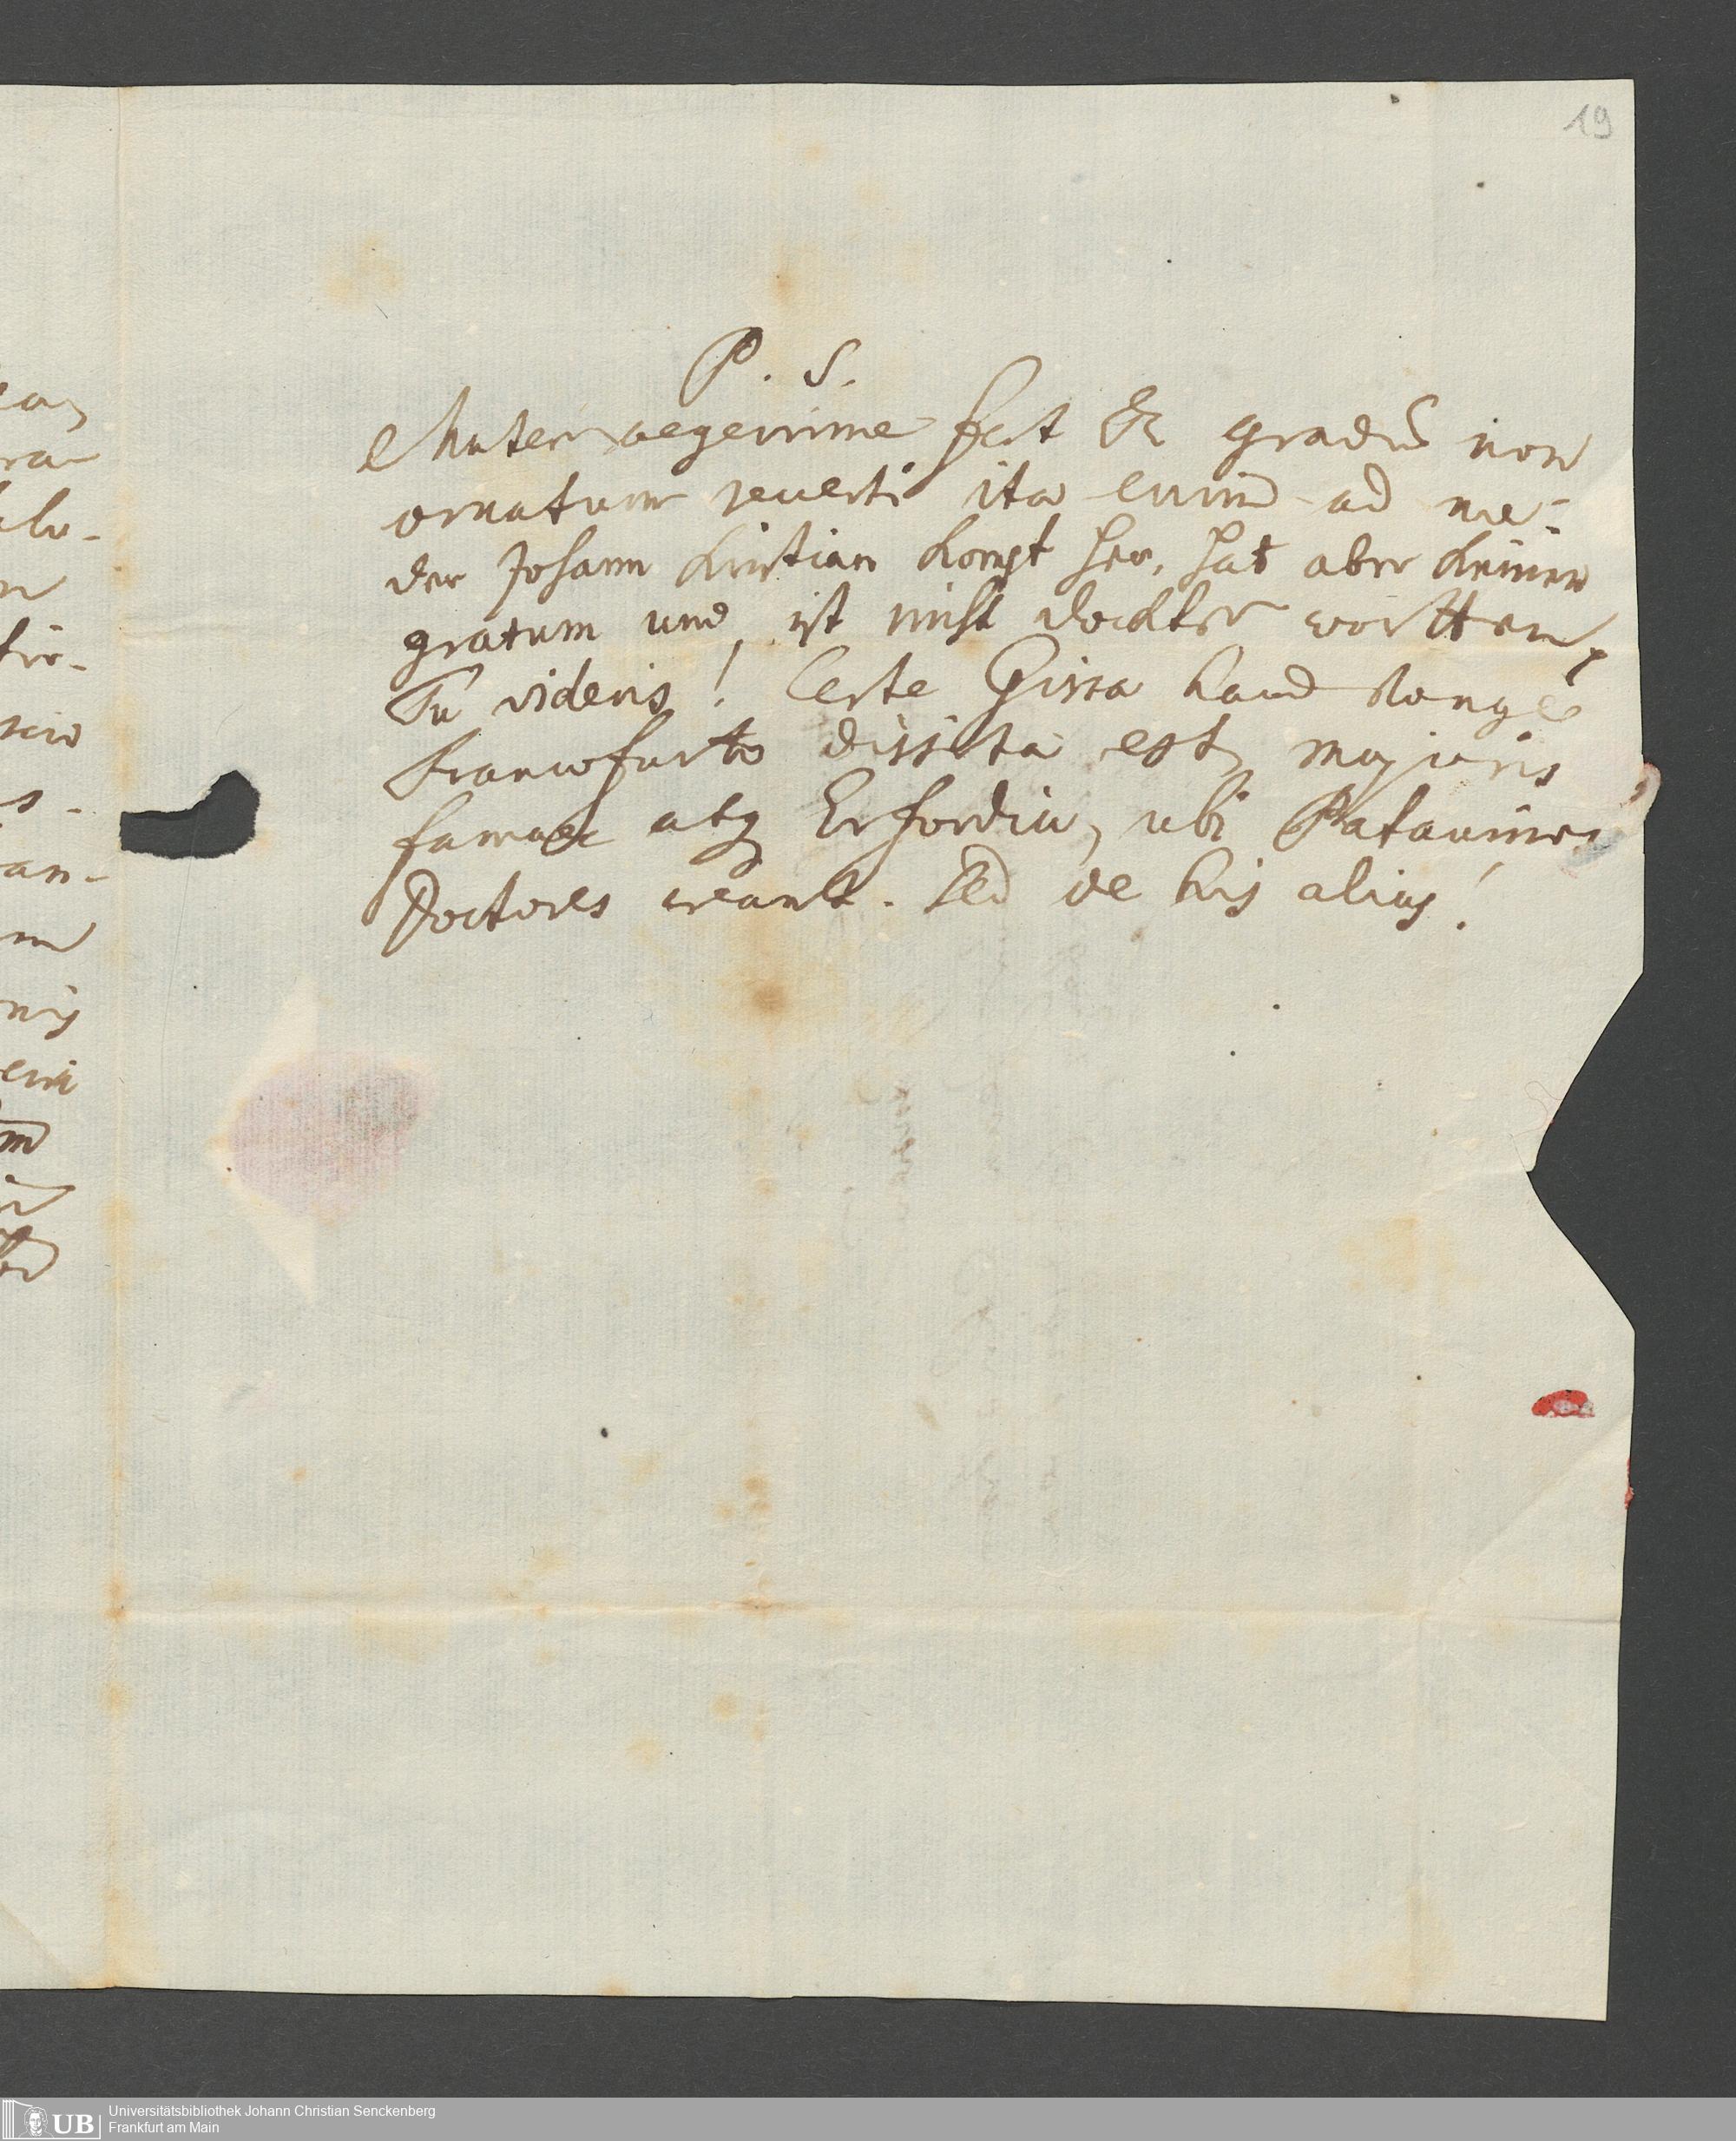 19
P. S.
Mater aegerrime fert Te gradu non
ornatum reverti ita enim ad me:
der Johann Kristian kompt her, hat aber keinen
gratum und ist nicht docktor wortten,
Tu videris! Certe Gissa haud longe
Francofurto dissita est, majoris
famae atq Erfordia, ubi Patavinos
Doctores creant. Sed de his alias!
UB
Universitätsbibliothek Johann Christian Senckenberg
Frankfurt am Main